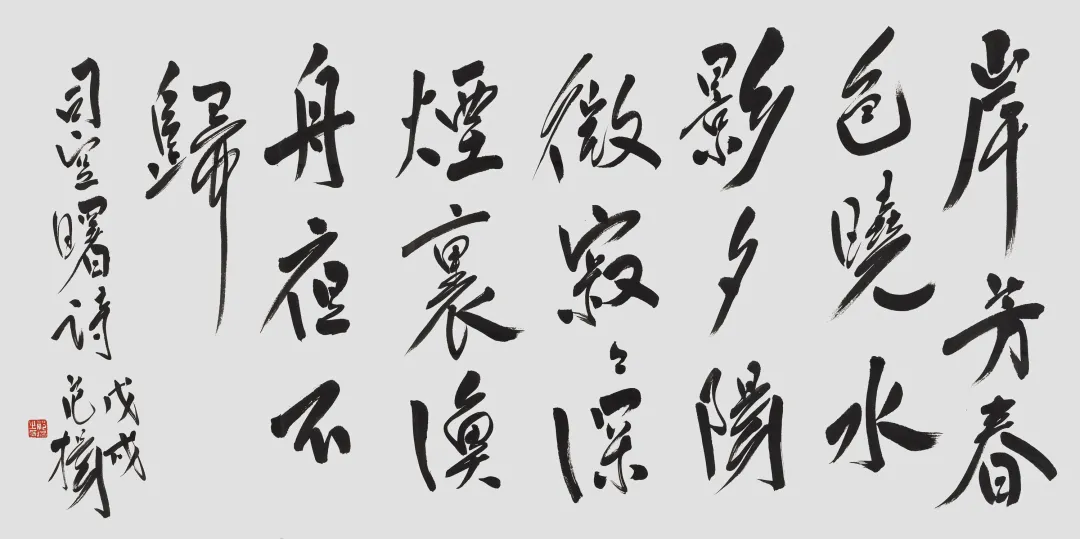 岸芳春
色曉水
影夕陽
微寂〻深
煙裏漁
舟夜不
歸
司空曙詩
戊戌
范